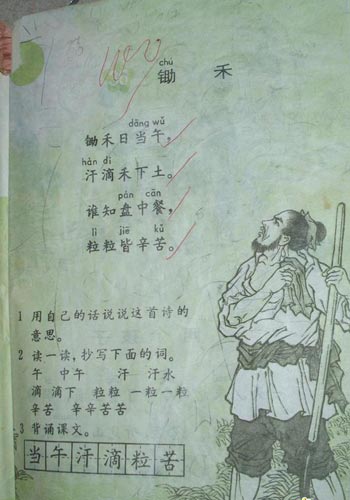 chú
锄 禾
dāng wǔ
锄禾日当午,
hàn dī
汗滴禾下土。
pán cān
谁知盘中餐,
lì jiē kǔ
粒粒皆辛苦。
1 用自己的话说说这首诗的
意思。
2 读一读,抄写下面的词。
午 中午 汗 汗水
滴 滴下 粒粒 一粒一粒
辛苦 辛辛苦苦
3 背诵课文。
当午汗滴粒苦